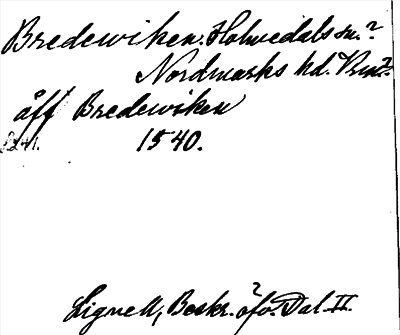 Bredewiken. Holmedals sn.?
Nordmarks hd. Vrm?
åff Bredewiken
1540.
Lignell, Beskr. öfv. Dal. II.